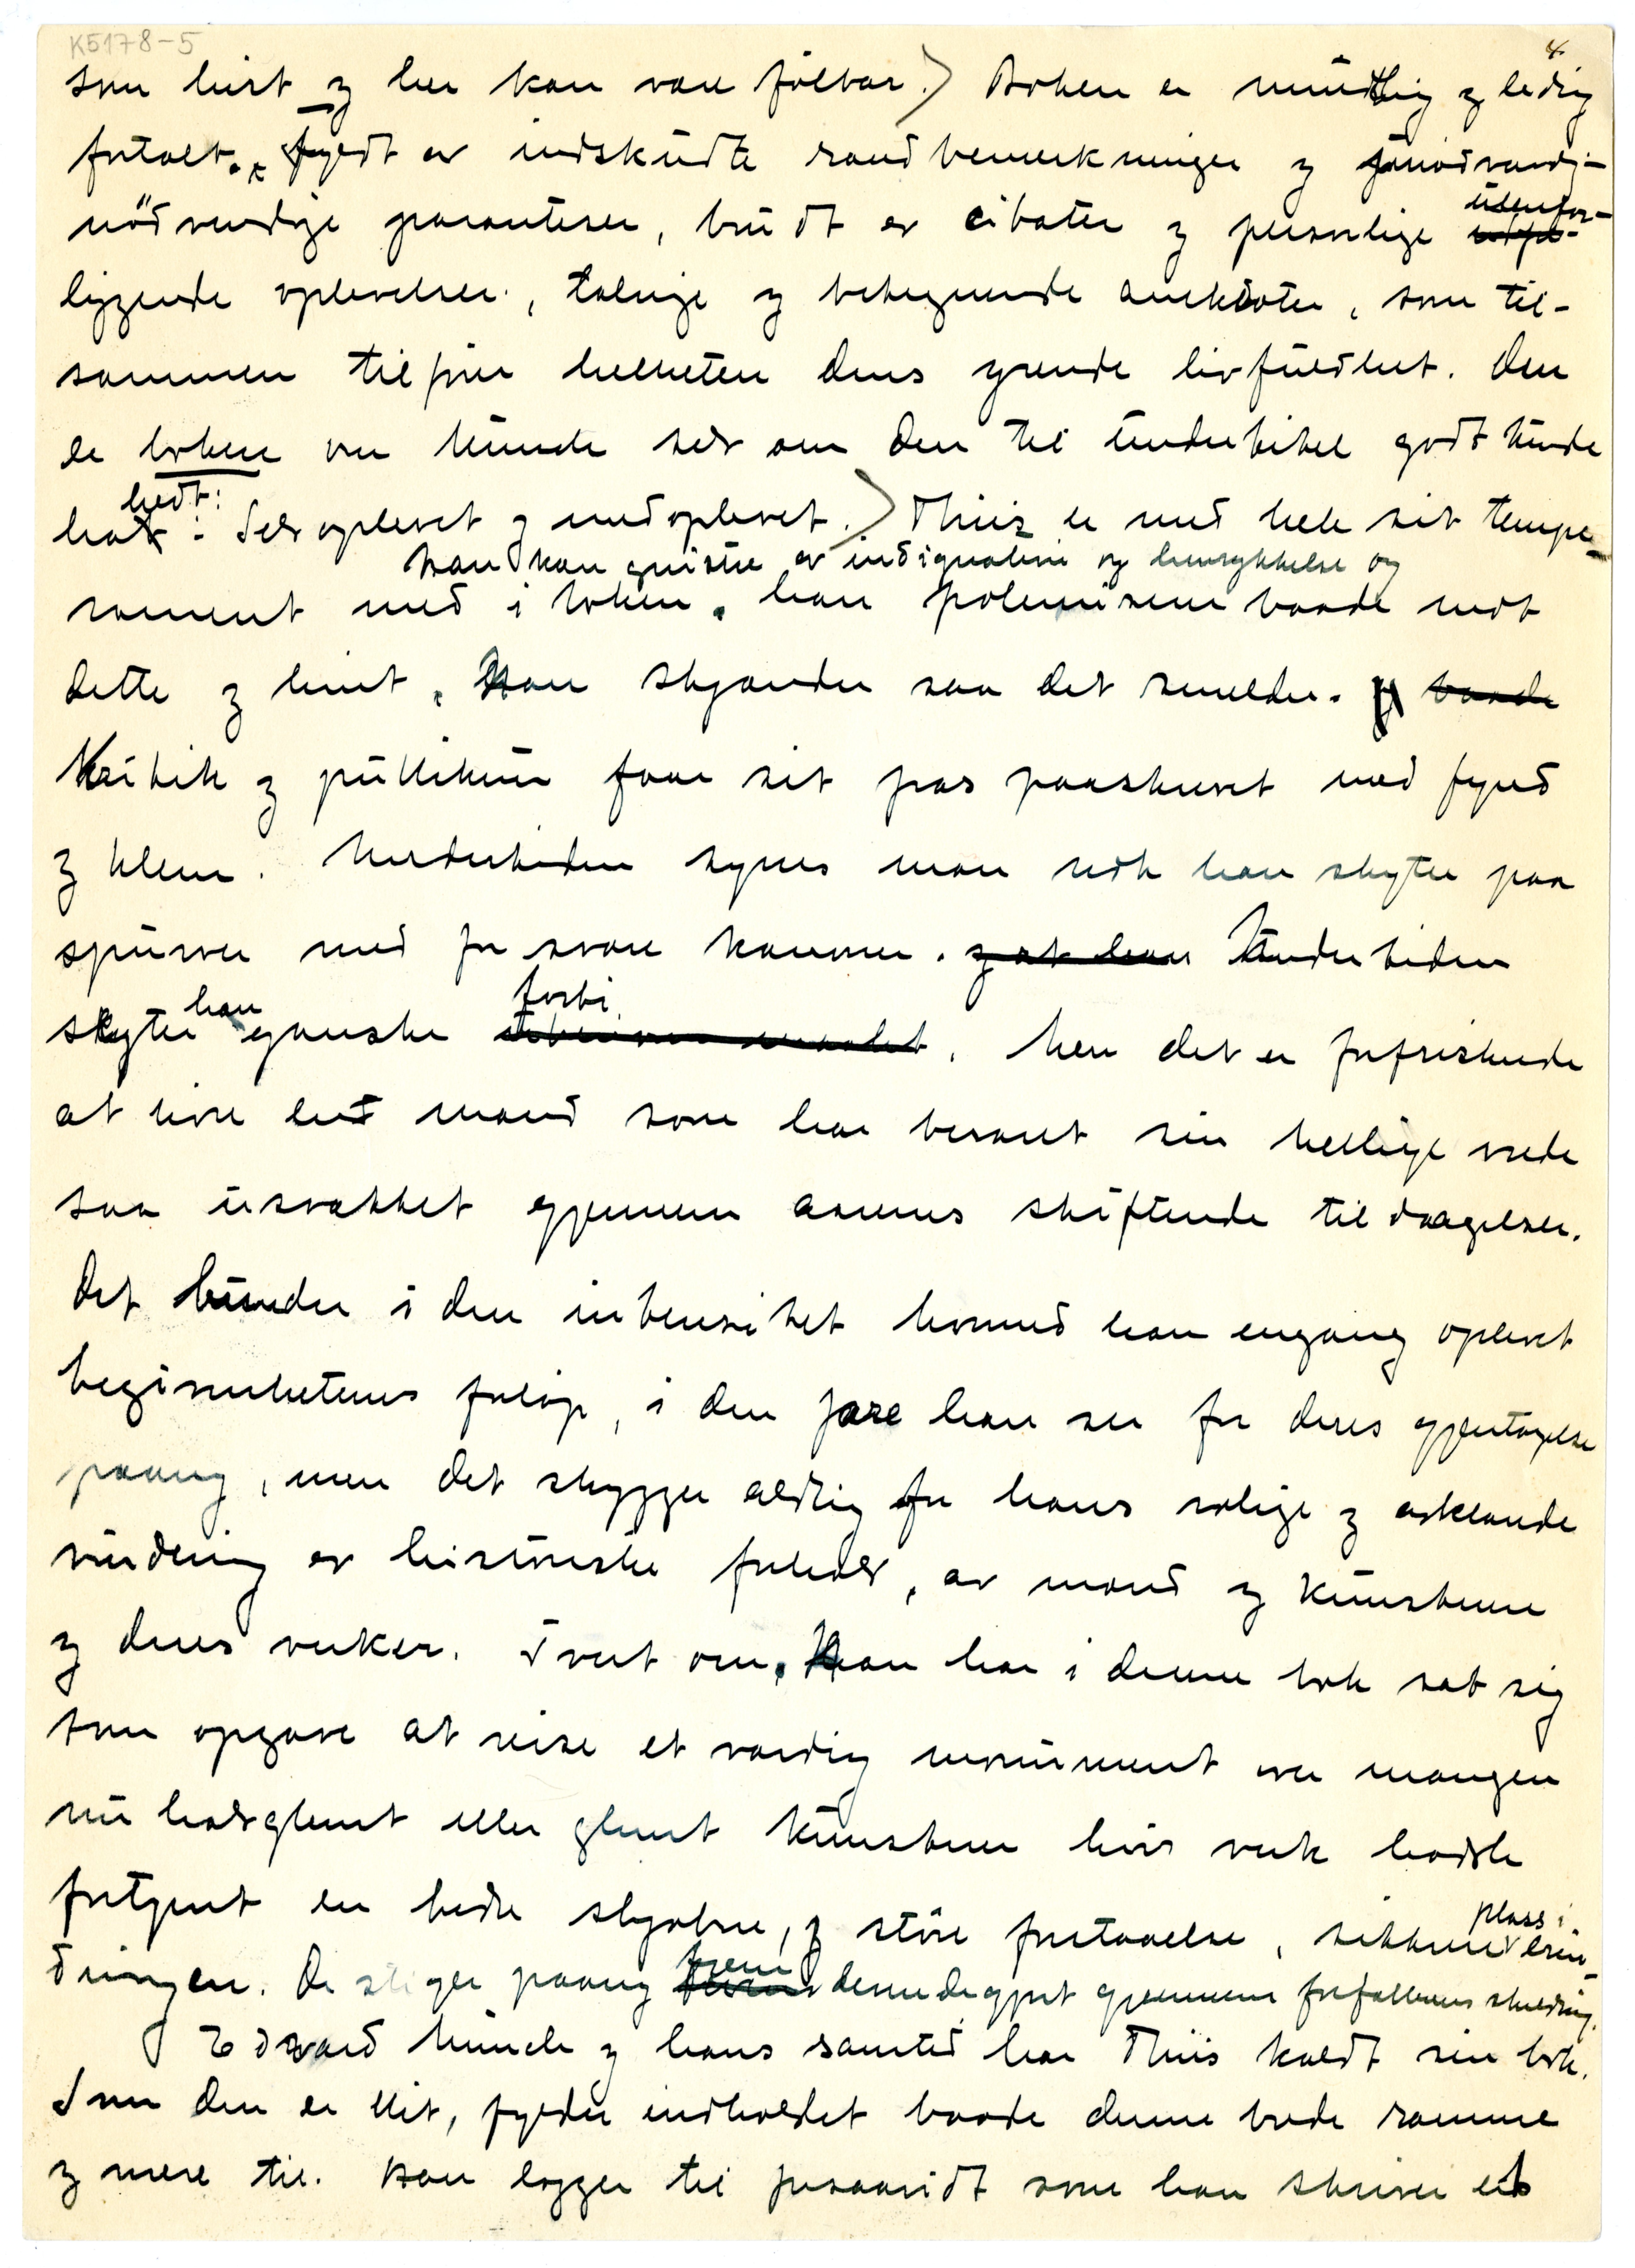 K5178-5
4
som hist og her kan være følbar.) Boken er mundtlig og ledig
fortalt, fyldt av indskudte randbemerkninger og
nødvendige paranteser, brudt av citater og personlige utenfor-
liggende oplevelser, talrige og betegnende anekdoter, som til-
sammen tilfører helheten dens yrende livfuldhet. Den
er boken om Munch selv om den til undertitel godt kunde
hat hedt: Selvoplevet og medoplevet.) Thiis er med hele sit tempe-
han kan gnistre av indignation og henrykkelse og
rament med i boken. han polemiserer baade mot
dette og hint, Han skjænder saa det smelder. baade
Kritik og publikum faar sit pas paaskrevet med fynd
og klem. Undertiden synes man nok han skyter paa
spurver med for svære kanoner. og at han Undertiden
skyter han ganske forbi. Men det er forfriskende
at høre en mand som har bevaret sin hellige vrede
saa usvækket gjennem aarenes skiftende tildragelser.
Det bunder i den intensitet hvormed han engang oplevet
begivenhetenes forløp, i den fare han ser for deres gjentagelse
paany, men det skygger aldrig for hans rolige og avklarede
vurdering av historiske forhold, av mænd og kunstnere
og deres verker. Tvert om. Han har i denne bok sat sig
som opgave at reise et værdig monument over mangen
nu halvglemt eller glemt kunstner hvis verk hadde
fortjent en bedre skjæbne, og større forstaaelse, sikkrere plass i erin-
dringen. De stiger paany frem gjennem forfatterens skildring.
Edvard Munch og hans samtid har Thiis kaldt sin bok.
Som den er blit, fylder indholdet baade denne brede ramme
og mere til. Han lægger til forsaavidt som han skriver et